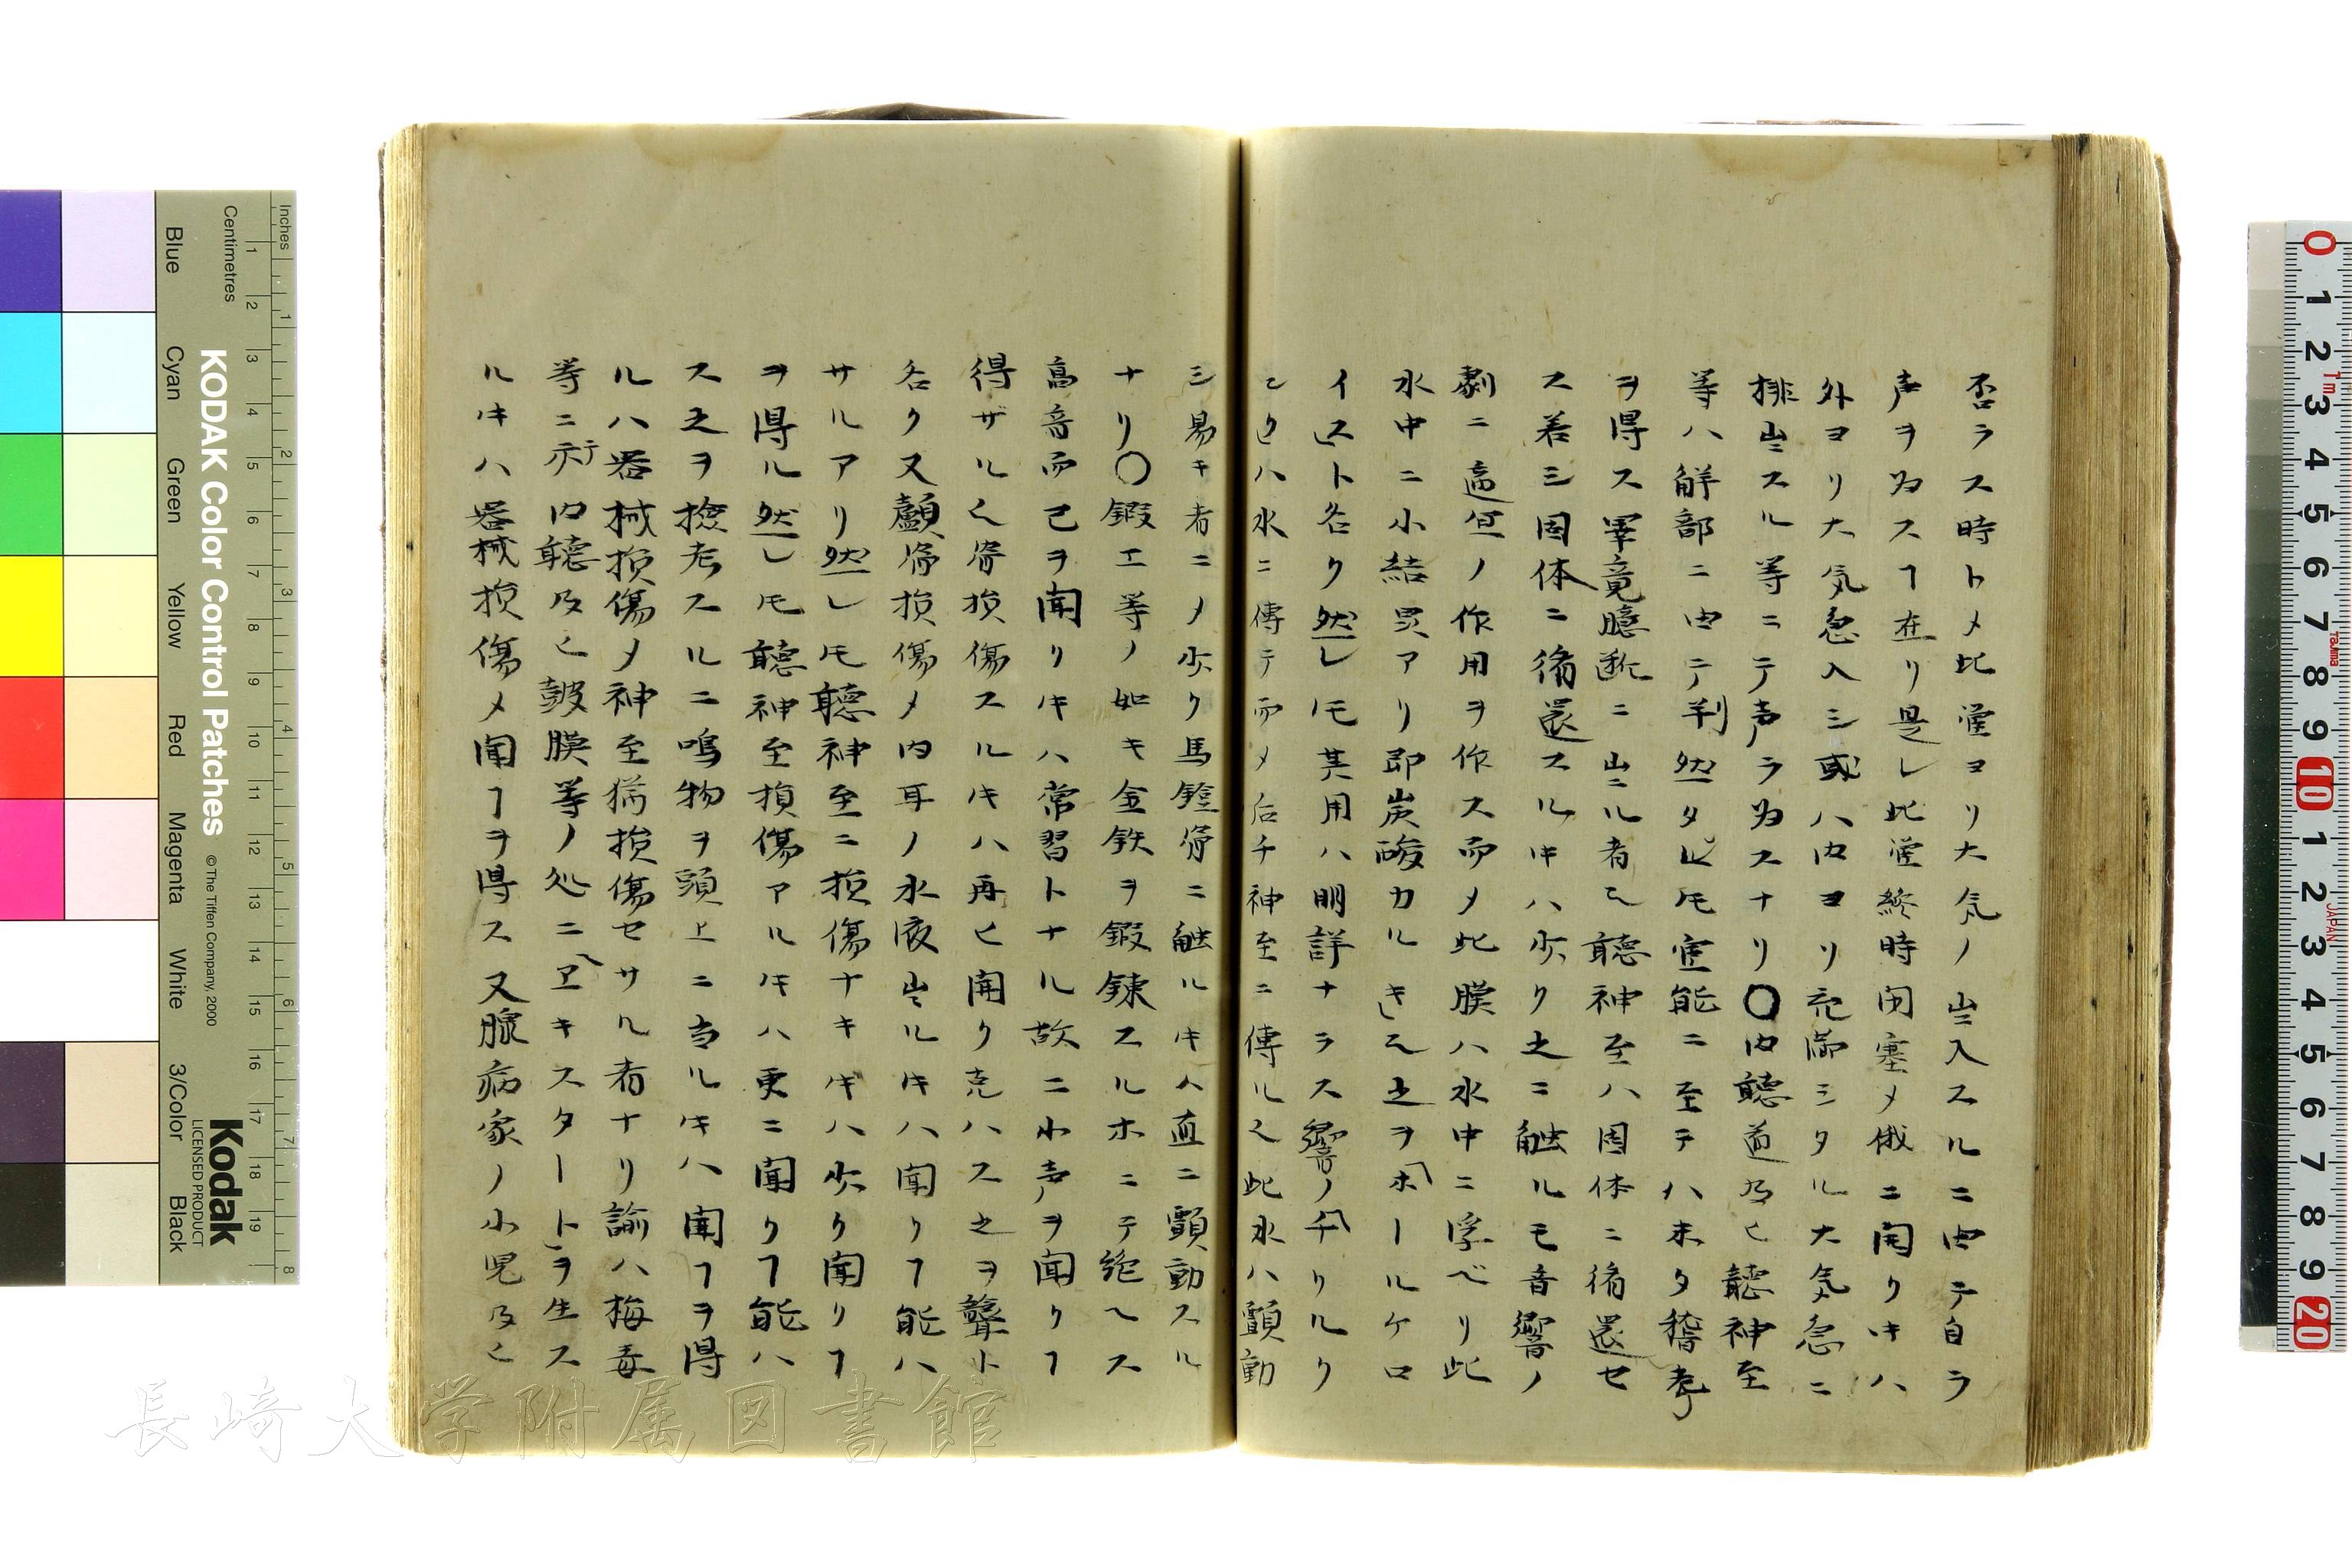 否ラス時トメ此管ヨリ大気ノ出入スルニ由テ自ラ
声ヲ為スヿ在リ是レ此管終時閉塞メ俄ニ開クキハ
外ヨリ大気急入シ或ハ内ヨリ充満シタル大気急ニ
排出スル等ニテ声ヲ為スナリ〇内聴道及ヒ聴神至
等ハ解部ニ由テ判然タレ𪜈官能ニ至テハ未タ稽考
ヲ得ス畢竟臆断ニ出ル者已聴神至ハ固体ニ循還セ
ス若シ固体ニ循還スルキハ少ク之ニ触ルモ音響ノ
劇ニ過亘ノ作用ヲ作ス而メ此膜ハ水中ニ浮ベリ此
水中ニ小結晃アリ即炭酸カルキ之ヲホールケロ
イスト名ク然レ𪜈其用ハ明詳ナラス響ノ千リルリ
ヒクハ水ニ傳テ而メ后チ神至ニ傳ル此水ハ顫動
シ易キ者ニメ少ク馬鐙骨ニ触ルキハ直ニ顫動スル
ナリ〇鍜工等ノ如キ金鉄ヲ鍜錬スルホニテ絶ヘス
高音而已ヲ聞クキハ常習トナル故ニ小声ヲ聞クヿ
得ザル骨損傷スルキハ再ヒ聞ク克ハス之ヲ聾ト
名ク又顱骨損傷メ内耳ノ水液出ルキハ聞クヿ能ハ
サルアリ然レ𪜈聴神至ニ損傷ナキキハ少ク聞クヿ
ヲ得ル然レ𪜈聴神至損傷アルキハ更ニ聞クヿ能ハ
ス之ヲ撿考スルニ鳴物ヲ頭上ニ当ルキハ聞ヿヲ得
ルハ器械損傷メ神至猶損傷セサル者ナリ諭ハ梅毒
等ニテ内聴及ヒ皷膜等ノ処ニヱキスタートヲ生ス
ルキハ器械損傷メ聞ヿヲ得ス又腺病家ノ小児及ヒ
Inches
Centimetres
KODAK Color Control Patches
© The Tiffen Company, 2000
Kodak
LICENSED PRODUCT
Blue
Cyan
Green
Yellow
Red
Magenta
White
3/Color
Black
長崎大学附属図書館